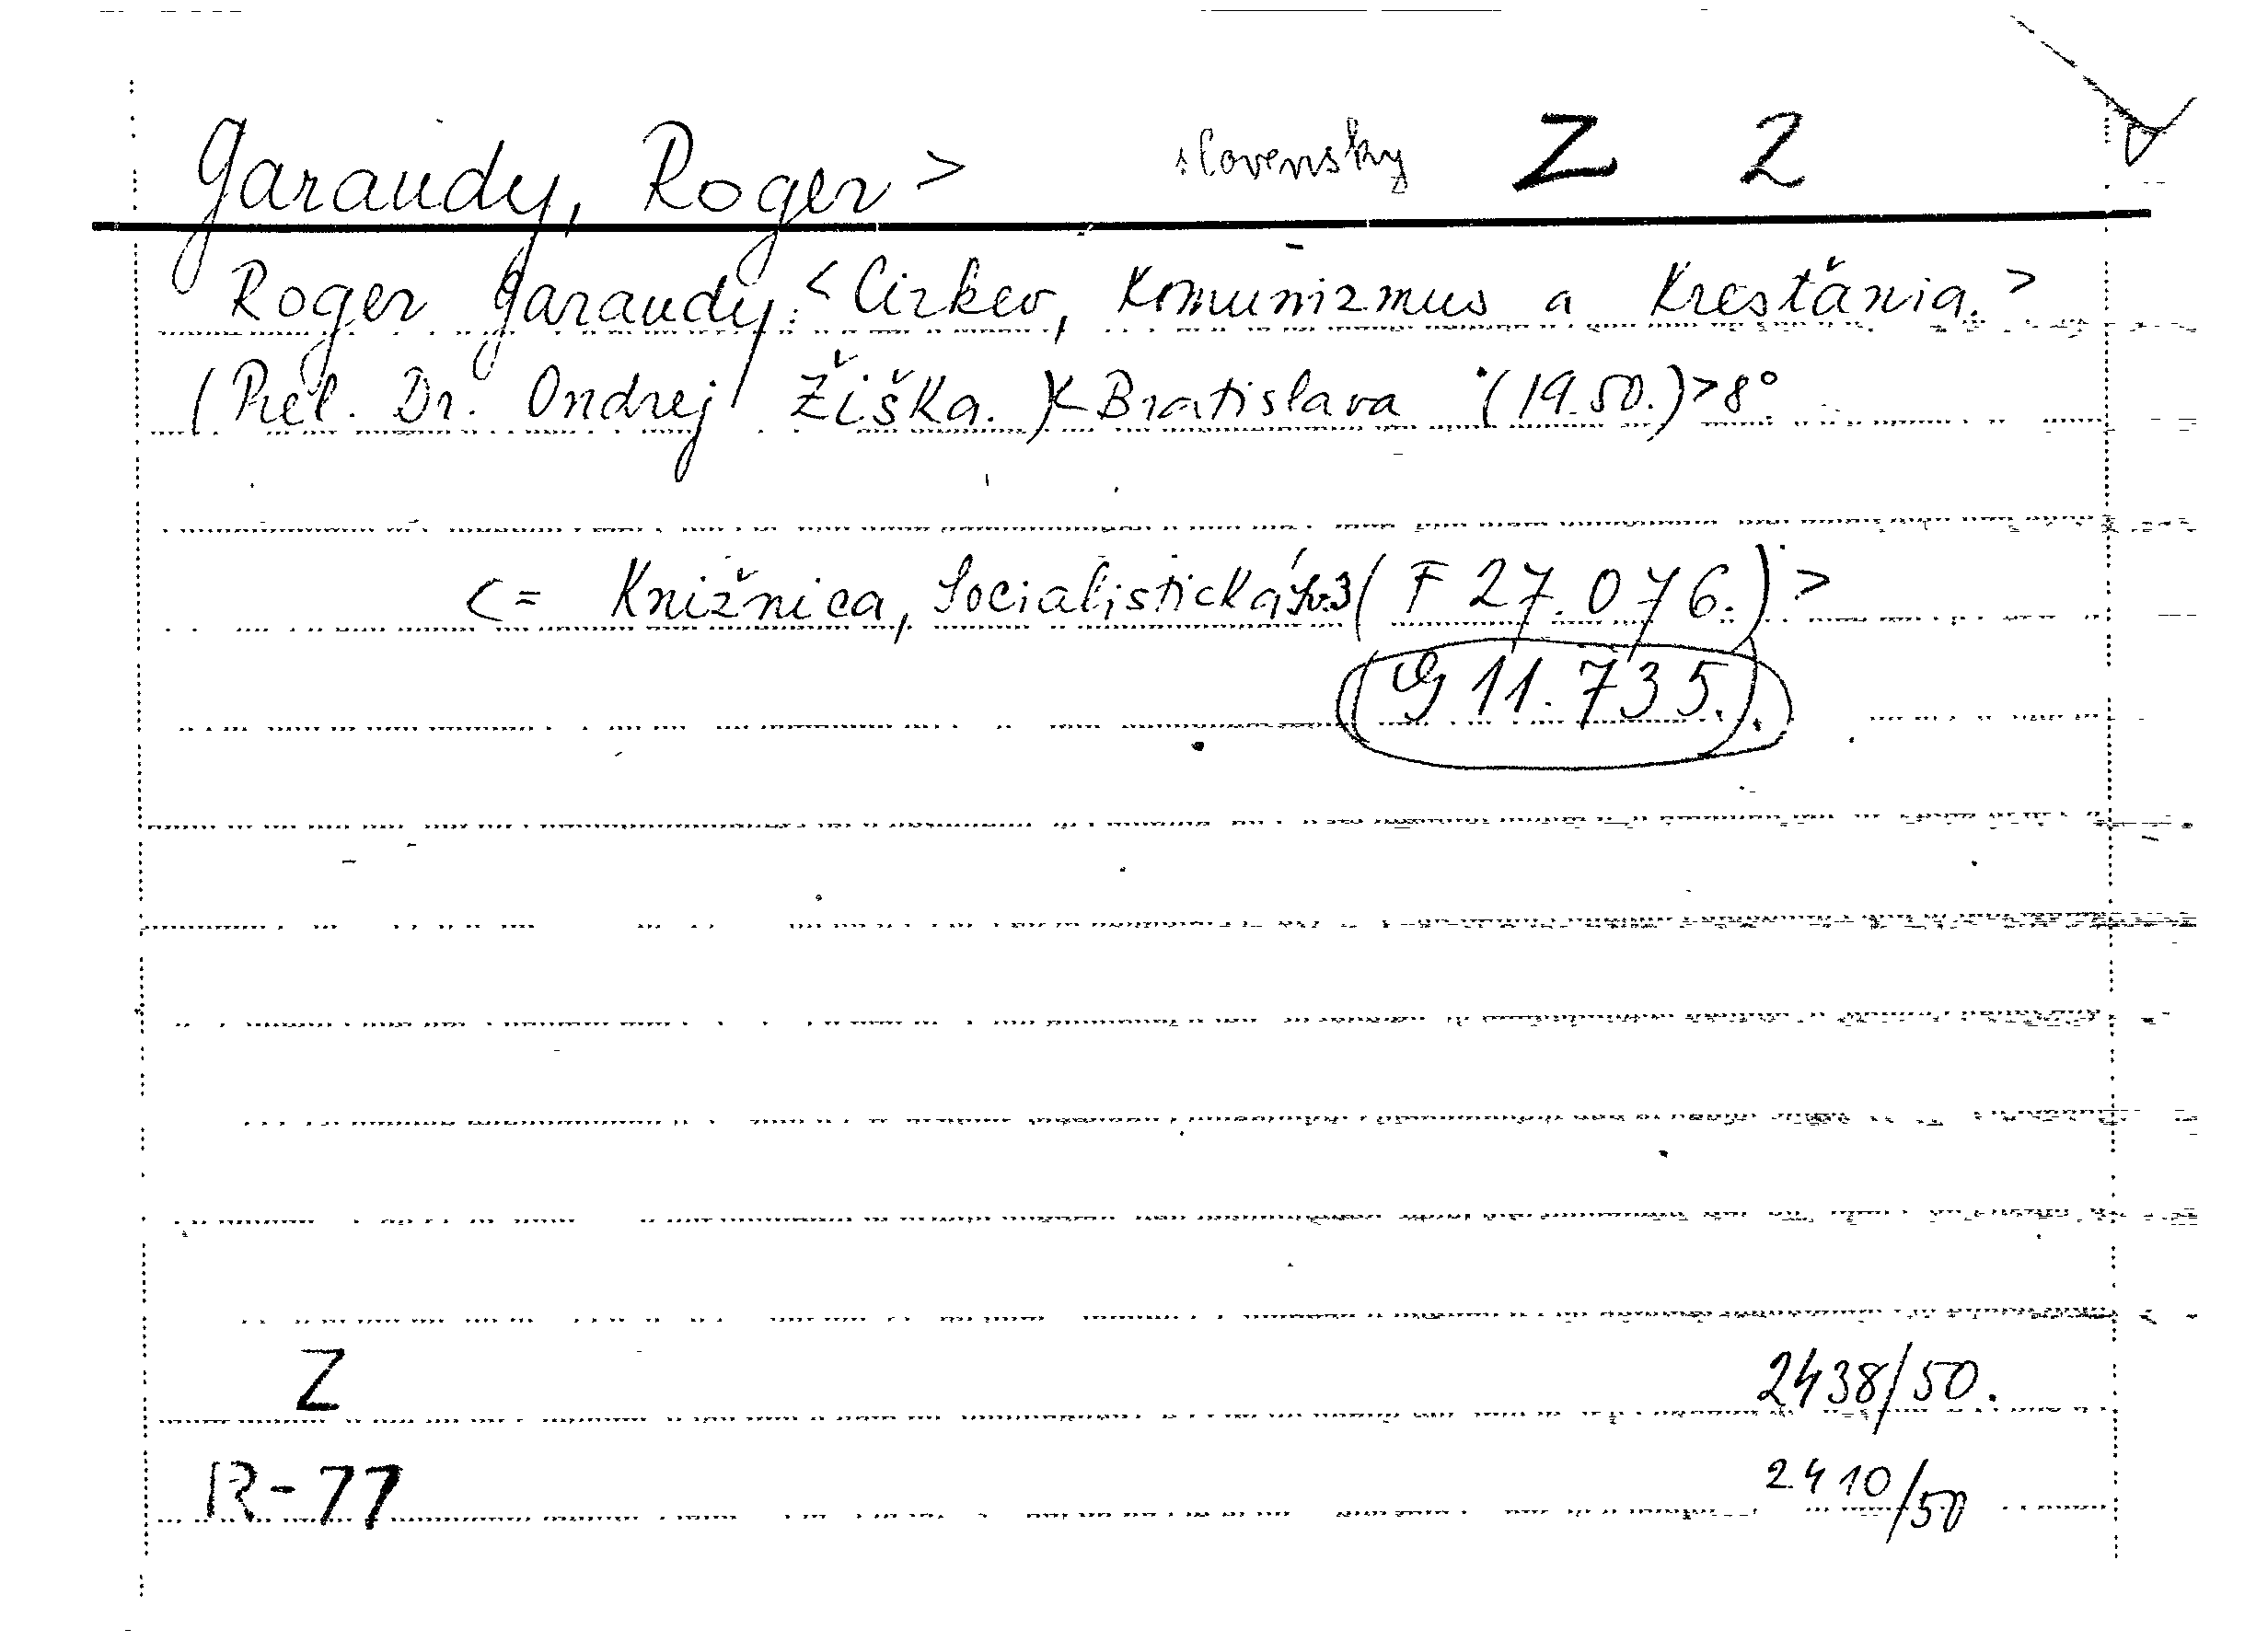 Garaudy, Roger > slovensky Z 2
Roger Garaudy: < Cirkev, Komunizmus a Kresťania. >
(Prel. Dr. Ondrej Žiška.) < Bratislava (19.50.) > 8°
<= Knižnica, Socialistická Sv. 3 (F 27.076.) >
(G 11.735.).
Z 2438/50.
R-77 2410/50